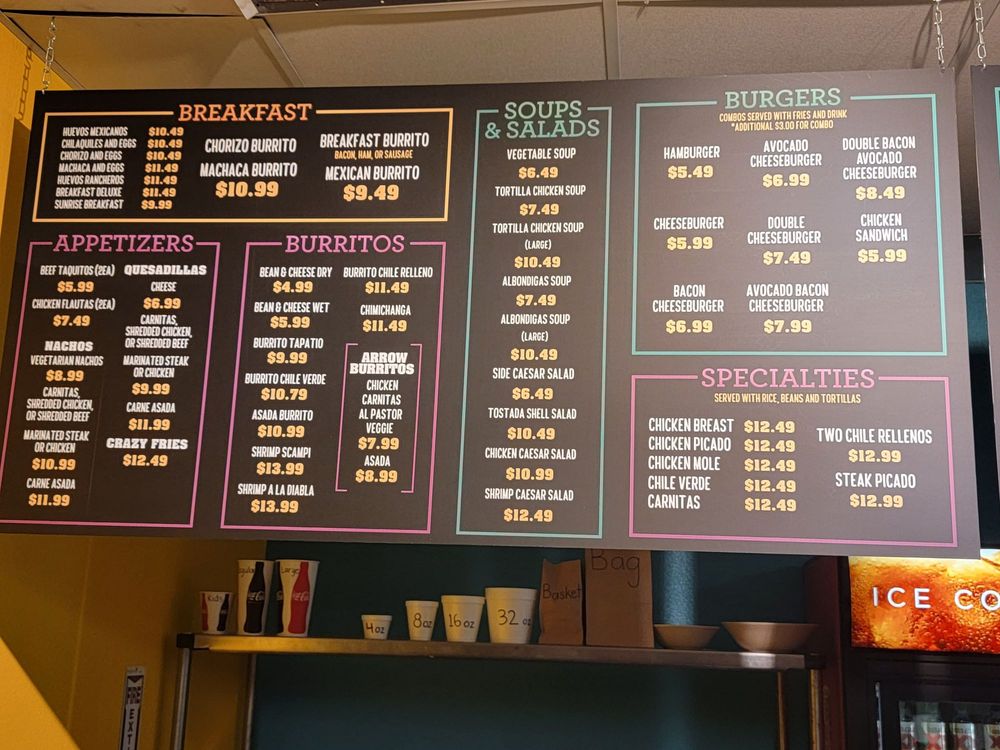 BREAKFAST
HUEVOS MEXICANOS $10.49
CHILAQUILES AND EGGS $10.49
CHORIZO AND EGGS $10.49
MACHACA AND EGGS $11.49
HUEVOS RANCHEROS $11.49
BREAKFAST DELUXE $11.49
SUNRISE BREAKFAST $9.99
CHORIZO BURRITO
MACHACA BURRITO
$10.99
BREAKFAST BURRITO
BACON, HAM, OR SAUSAGE
MEXICAN BURRITO
$9.49
APPETIZERS
BEEF TAQUITOS (2EA)
$5.99
CHICKEN FLAUTAS (2EA)
$7.49
NACHOS
VEGETARIAN NACHOS
$8.99
CARNITAS,
SHREDDED CHICKEN,
OR SHREDDED BEEF
MARINATED STEAK
OR CHICKEN
$10.99
CARNE ASADA
$11.99
QUESADILLAS
CHEESE
$6.99
CARNITAS,
SHREDDED CHICKEN,
OR SHREDDED BEEF
MARINATED STEAK
OR CHICKEN
$9.99
CARNE ASADA
$11.99
CRAZY FRIES
$12.49
BURRITOS
BEAN & CHEESE DRY
$4.99
BEAN & CHEESE WET
$5.99
BURRITO TAPATIO
$9.99
BURRITO CHILE VERDE
$10.79
ASADA BURRITO
$10.99
SHRIMP SCAMPI
$13.99
SHRIMP A LA DIABLA
$13.99
BURRITO CHILE RELLENO
$11.49
CHIMICHANGA
$11.49
ARROW
BURRITOS
CHICKEN
CARNITAS
AL PASTOR
VEGGIE
$7.99
ASADA
$8.99
SOUPS
& SALADS
VEGETABLE SOUP
$6.49
TORTILLA CHICKEN SOUP
$7.49
TORTILLA CHICKEN SOUP
(LARGE)
$10.49
ALBONDIGAS SOUP
$7.49
ALBONDIGAS SOUP
(LARGE)
$10.49
SIDE CAESAR SALAD
$6.49
TOSTADA SHELL SALAD
$10.49
CHICKEN CAESAR SALAD
$10.99
SHRIMP CAESAR SALAD
$12.49
BURGERS
COMBOS SERVED WITH FRIES AND DRINK
*ADDITIONAL $3.00 FOR COMBO
HAMBURGER
$5.49
AVOCADO
CHEESEBURGER
$6.99
DOUBLE BACON
AVOCADO
CHEESEBURGER
$8.49
CHEESEBURGER
$5.99
DOUBLE
CHEESEBURGER
$7.49
CHICKEN
SANDWICH
$5.99
BACON
CHEESEBURGER
$6.99
AVOCADO BACON
CHEESEBURGER
$7.99
SPECIALTIES
SERVED WITH RICE, BEANS AND TORTILLAS
CHICKEN BREAST $12.49
CHICKEN PICADO $12.49
CHICKEN MOLE $12.49
CHILE VERDE $12.49
CARNITAS $12.49
TWO CHILE RELLENOS
$12.99
STEAK PICADO
$12.99
Kids
Large
4 oz
8 oz
16 oz
32 oz
Basket
Bag
ICE CO